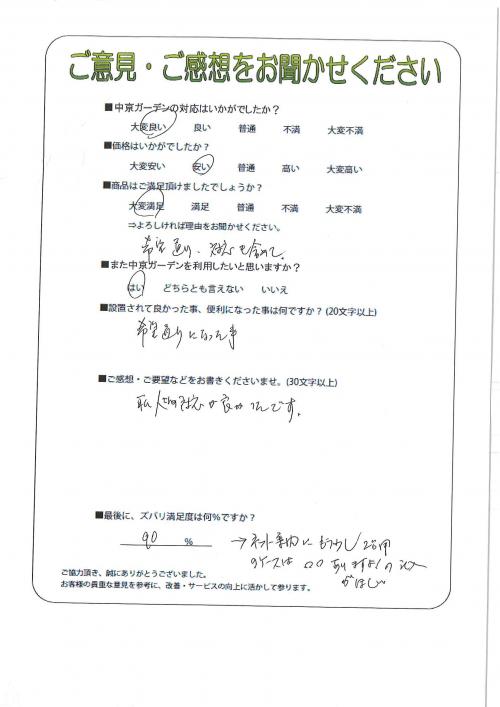 ご意見・ご感想をお聞かせください
■中京ガーデンの対応はいかがでしたか？
大変良い 良い 普通 不満 大変不満
■価格はいかがでしたか？
大変安い 安い 普通 高い 大変高い
■商品はご満足頂けましたでしょうか？
大変満足 満足 普通 不満 大変不満
⇒よろしければ理由をお聞かせください。
希望通り、対応も含めて。
■また中京ガーデンを利用したいと思いますか？
はい どちらとも言えない いいえ
■設置されて良かった事、便利になった事は何ですか？(20文字以上)
希望通りになった事
■ご感想・ご要望などをお書きくださいませ。(30文字以上)
対応が良かったです。
■最後に、ズバリ満足度は何%ですか？
90 %
→ネット案内にもう少し
のケースは ありますよの
がほしい
ご協力頂き、誠にありがとうございました。
お客様の貴重な意見を参考に、改善・サービスの向上に活かして参ります。